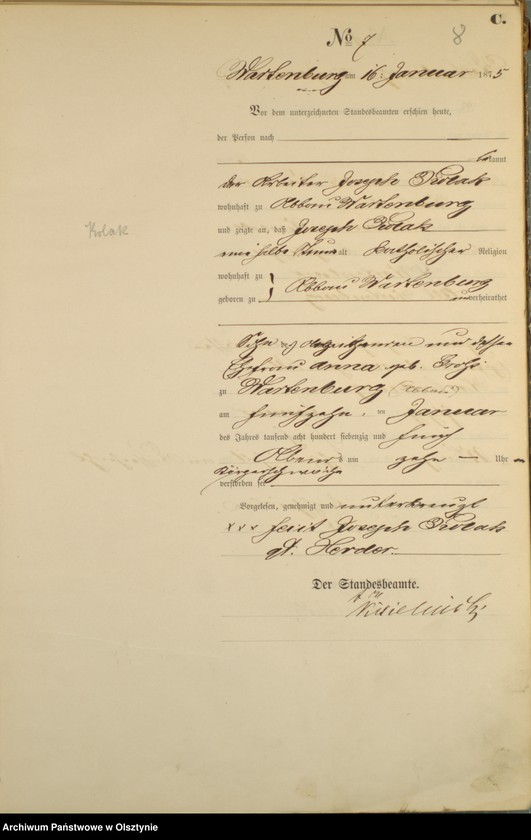 C.
8
No 7
Wartenburg am 16. Januar 1875
Vor dem unterzeichneten Standesbeamten erschien heute,
der Person nach
bekannt
der Arbeiter Joseph Kolak
wohnhaft zu Abbau Wartenburg
und zeigte an, daß Joseph Kolak
eine halbe Stunde alt katholischer Religion
wohnhaft zu
geboren zu } Abbau Wartenburg
unverheirathet
Sohn des und dessen
Ehefrau Anna geb.
zu Wartenburg (Abbau)
am funfzehn, en Januar
des Jahrs tausend acht hundert siebenzig und funf
Abends um zehn — Uhr
Körperschwäche
verstorben sei
Vorgelesen, genehmigt und unterkreuzt
× × × Joseph Kolak
gt. Herder.
Der Standesbeamte.
Kolak
Archiwum Państwowe w Olsztynie